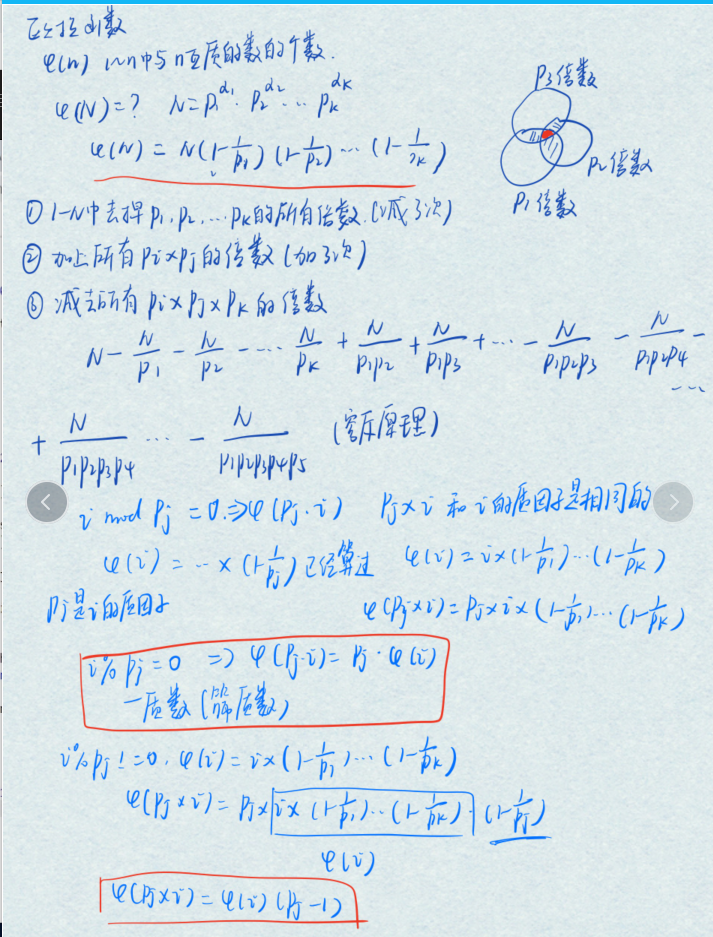 欧拉函数
φ(n) 1~n中与n互质的数的个数.
φ(N)=? N=p₁^α₁·p₂^α₂…p_k^αk
φ(N)=N(1-1/p₁)(1-1/p₂)…(1-1/p_k)
P₃倍数
P₂倍数
P₁倍数
① 1~N中去掉p₁,p₂,…pk的所有倍数.(减了3次)
② 加上所有pi×pj的倍数(加了3次)
③ 减去所有pi×pj×pk的倍数
N - N/p₁ - N/p₂ - … N/pk + N/p₁p₂ + N/p₁p₃ + … - N/p₁p₂p₃ - N/p₁p₂p₄ - …
+ N/p₁p₂p₃p₄ … - N/p₁p₂p₃p₄p₅ (容斥原理)
i mod pj = 0.⇒φ(pj·i) pj×i 和 i的质因子是相同的
φ(i) = …×(1-1/pj)已经算过 φ(i)=i×(1-1/p₁)…(1-1/pk)
pj是i的质因子 φ(pj×i)=pj×i×(1-1/p₁)…(1-1/pk)
i%pj=0 ⇒ φ(pj·i)=pj·φ(i)
质数(筛质数)
i%pj!=0.φ(i)=i×(1-1/p₁)…(1-1/pk)
φ(pj×i)=pj×i×(1-1/p₁)…(1-1/pk)·(1-1/pj)
φ(i)
φ(pj×i)=φ(i)(pj-1)